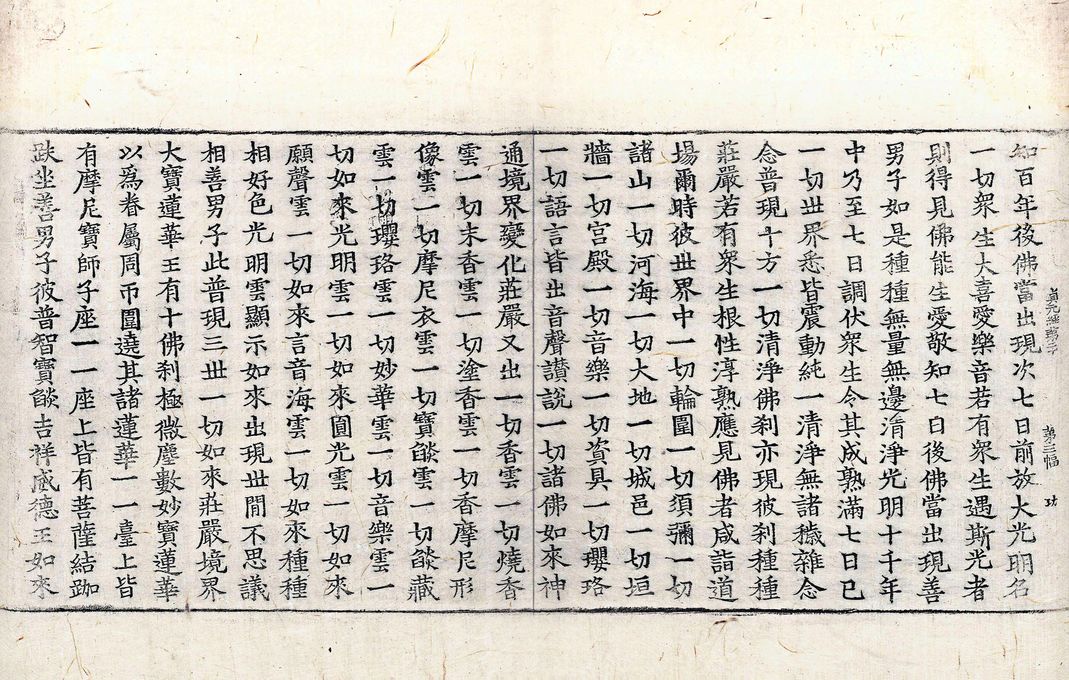 第三幅 功
知百年後佛當出現次七日前放大光明名
一切衆生大喜愛樂音若有衆生遇斯光者
則得見佛能生愛敬知七日後佛當出現善
男子如是種種無量無邊清淨光明十千年
中乃至七日調伏衆生令其成熟滿七日已
一切世界悉皆震動純一清淨無諸穢雜念
念普現十方一切清淨佛刹亦現彼刹種種
莊嚴若有衆生根性淳熟應見佛者咸詣道
場爾時彼世界中一切輪圍一切須彌一切
諸山一切河海一切大地一切城邑一切垣
牆一切宮殿一切音樂一切資具一切瓔珞
一切語言皆出音聲讃說一切諸佛如來神
通境界變化莊嚴又出一切香雲一切燒香
雲一切末香雲一切塗香雲一切香摩尼形
像雲一切摩尼衣雲一切寶燄雲一切燄藏
雲一切瓔珞雲一切妙華雲一切音樂雲一
切如來光明雲一切如來圓光雲一切如來
願聲雲一切如來言音海雲一切如來種種
相好色光明雲顯示如來出現世間不思議
相善男子此普現三世一切如來莊嚴境界
大寶蓮華王有十佛刹極微塵數妙寶蓮華
以爲眷屬周帀圍遶其諸蓮華一一臺上皆
有摩尼寶師子座一一座上皆有菩薩結跏
趺坐善男子彼普智寶燄吉祥威德王如來